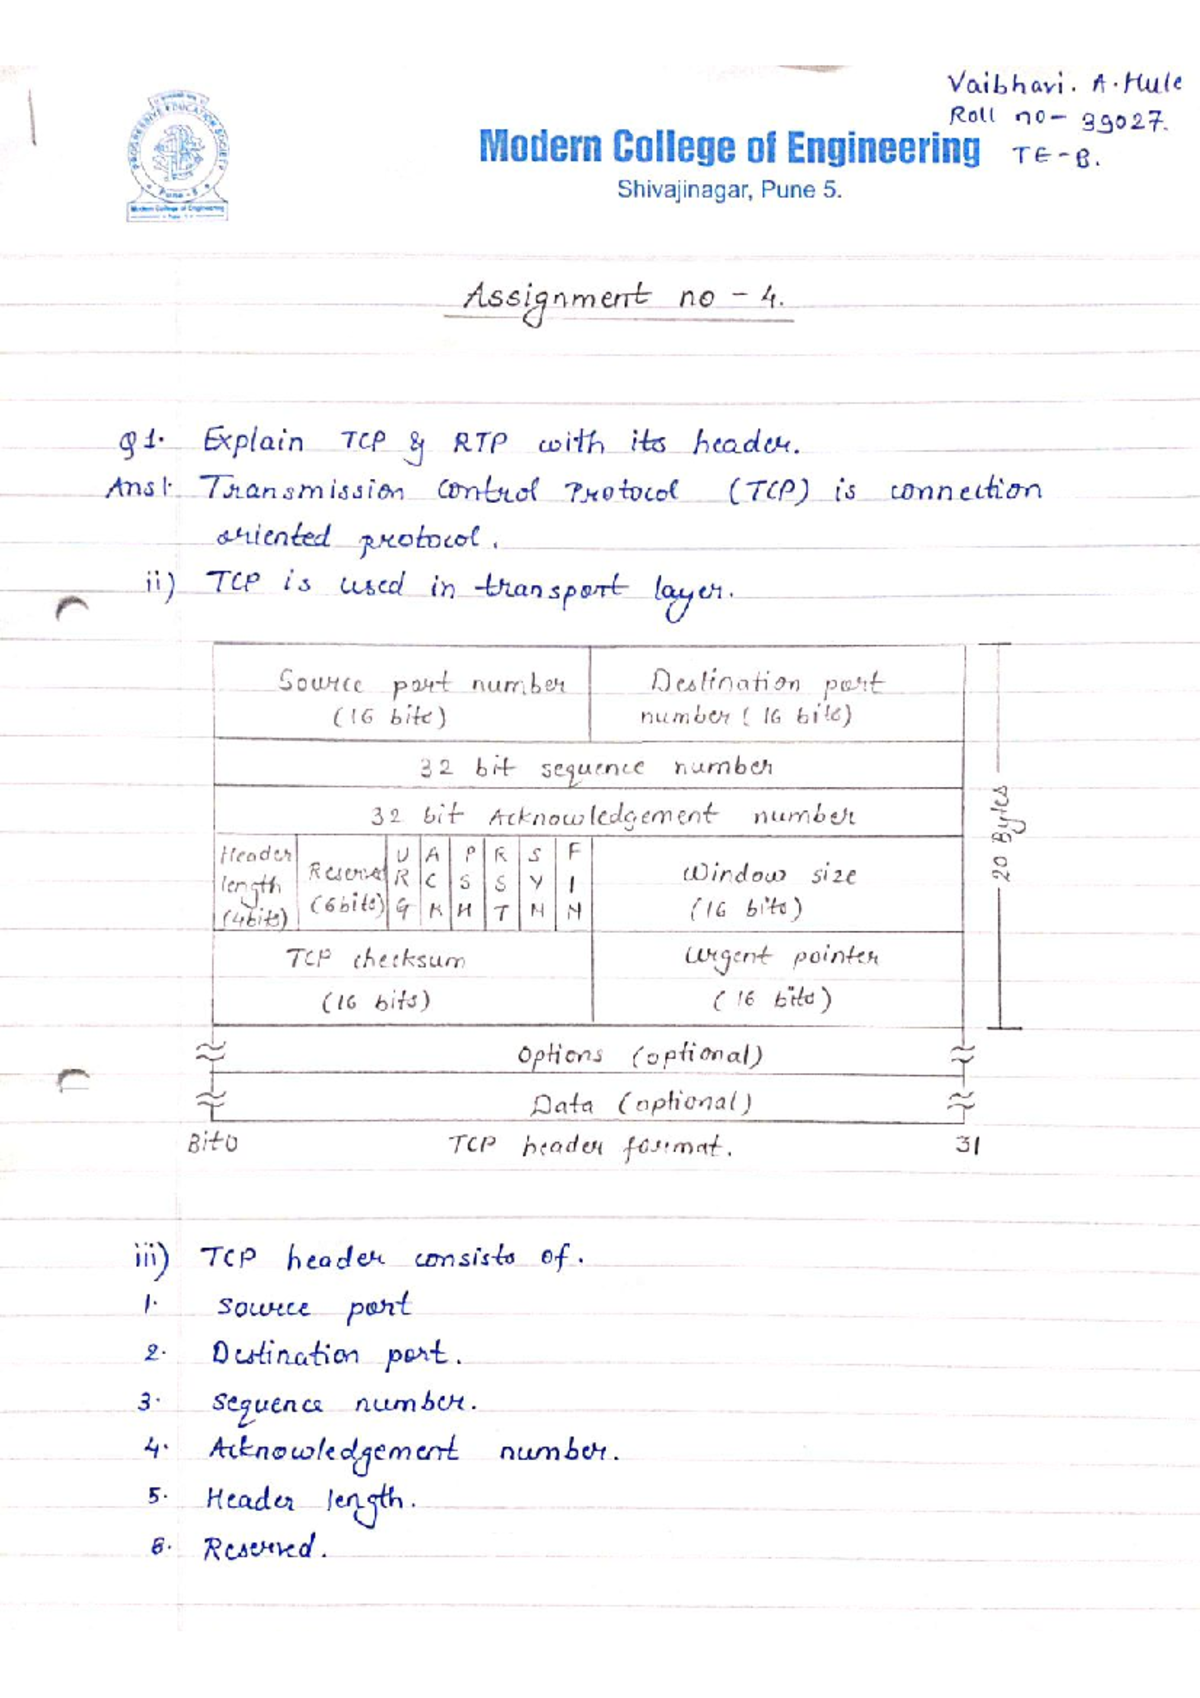 Vaibhavi. A. Hule
Roll no- 39027.
TE-B.
PROGRESSIVE EDUCATION SOCIETY
Pune - 5
Modern College of Engineering
Modern College of Engineering
Shivajinagar, Pune 5.
Assignment no - 4.
Q1. Explain TCP & RTP with its header.
Ans1. Transmission Control Protocol (TCP) is connection
oriented protocol.
ii) TCP is used in transport layer.
Source port number
(16 bits)
Destination port
number (16 bits)
32 bit sequence number
32 bit Acknowledgement number
Header
length
(4bits)
Reserved
(6bits)
URG
ACK
PSH
RST
SYN
FIN
Window size
(16 bits)
TCP checksum
(16 bits)
Urgent pointer
(16 bits)
20 Bytes
Options (optional)
Data (optional)
Bit0
TCP header format.
31
iii) TCP header consists of.
1. Source port
2. Destination port.
3. Sequence number.
4. Acknowledgement number.
5. Header length.
6. Reserved.